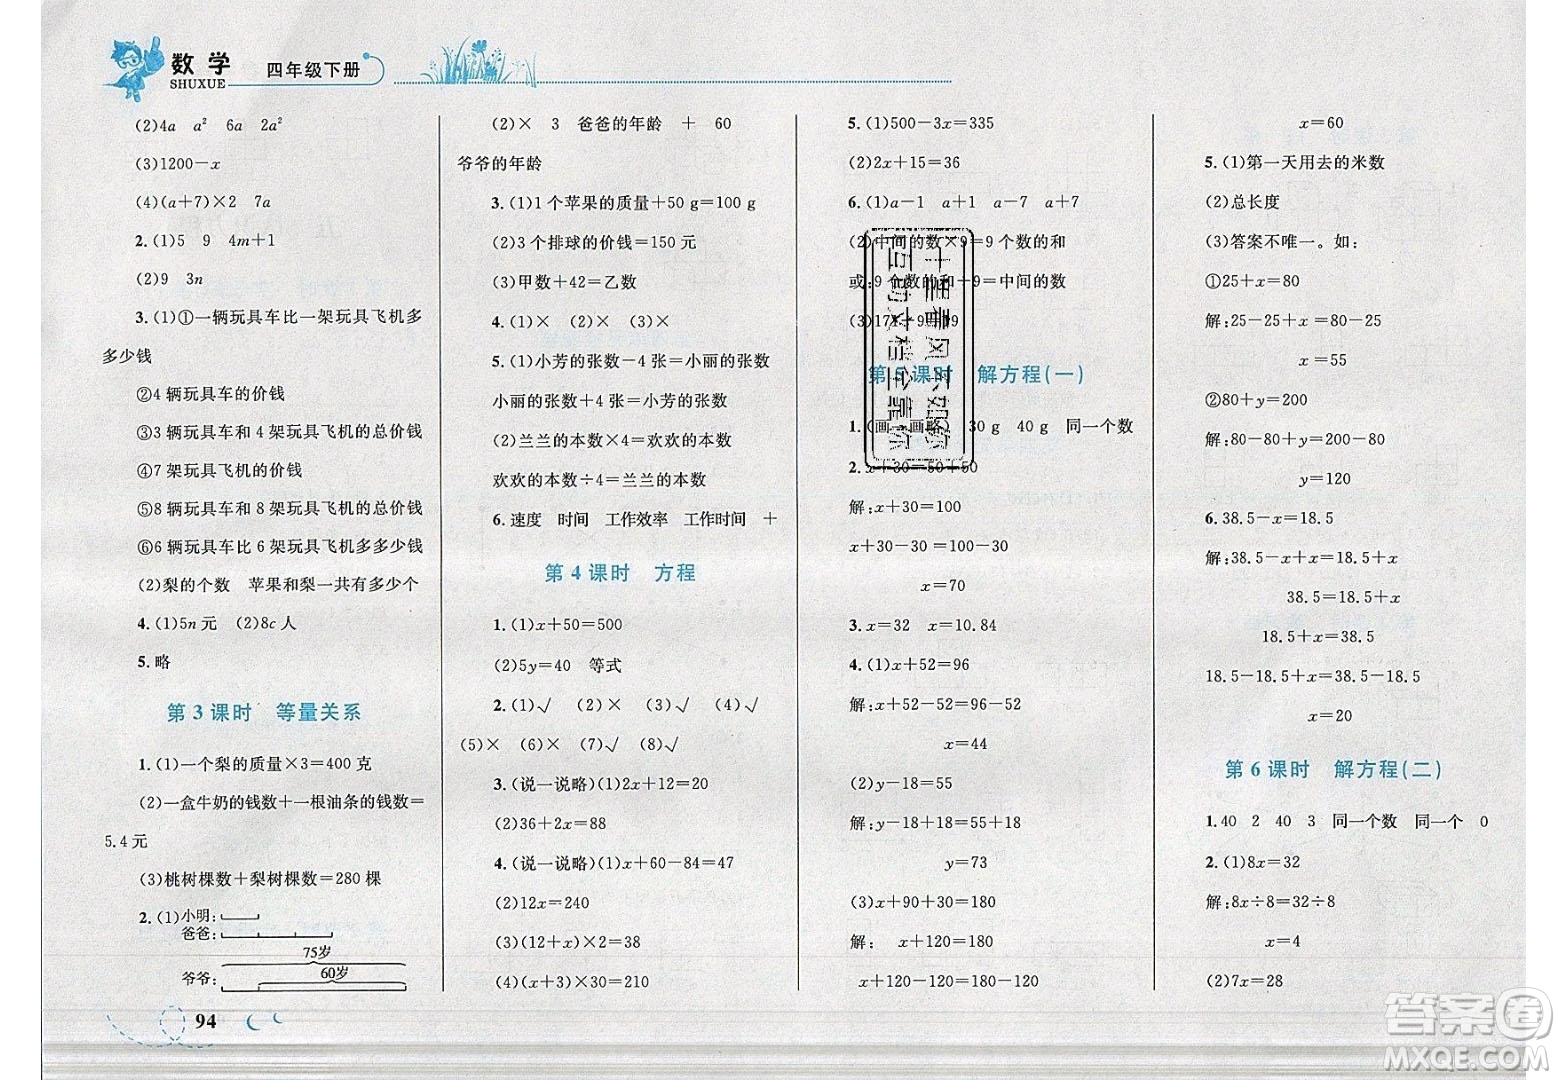 数学
SHUXUE
四年级下册
(2)4a a² 6a 2a²
(3)1200－x
(4)(a＋7)×2 7a
2.(1)5 9 4m＋1
(2)9 3n
3.(1)①一辆玩具车比一架玩具飞机多
多少钱
②4 辆玩具车的价钱
③3 辆玩具车和 4 架玩具飞机的总价钱
④7 架玩具飞机的价钱
⑤8 辆玩具车和 8 架玩具飞机的总价钱
⑥6 辆玩具车比 6 架玩具飞机多多少钱
(2)梨的个数 苹果和梨一共有多少个
4.(1)5n 元 (2)8c 人
5.略
第 3 课时 等量关系
1.(1)一个梨的质量×3＝400 克
(2)一盒牛奶的钱数＋一根油条的钱数＝
5.4 元
(3)桃树棵数＋梨树棵数＝280 棵
2.(1)小明:
爸爸:
75岁
爷爷:
60岁
94
(2)× 3 爸爸的年龄 ＋ 60
爷爷的年龄
3.(1)1 个苹果的质量＋50 g＝100 g
(2)3 个排球的价钱＝150 元
(3)甲数＋42＝乙数
4.(1)× (2)× (3)×
5.(1)小芳的张数－4 张＝小丽的张数
小丽的张数＋4 张＝小芳的张数
(2)兰兰的本数×4＝欢欢的本数
欢欢的本数÷4＝兰兰的本数
6.速度 时间 工作效率 工作时间 ＋
第 4 课时 方程
1.(1)x＋50＝500
(2)5y＝40 等式
2.(1)√ (2)× (3)√ (4)√
(5)× (6)× (7)√ (8)√
3.(说一说略)(1)2x＋12＝20
(2)36＋2x＝88
4.(说一说略)(1)x＋60－84＝47
(2)12x＝240
(3)(12＋x)×2＝38
(4)(x＋30)×5＝210
5.(1)500－3x＝335
(2)2x＋15＝36
6.(1)a－1 a＋1 a－7 a＋7
(2)中间的数×9＝9 个数的和
或:9 个数的和÷9＝中间的数
(3)171÷9＝19
第 5 课时 解方程(一)
1.(画一画略) 30 g 40 g 同一个数
2.x＋30＝50＋50
解:x＋30＝100
x＋30－30＝100－30
x＝70
3.x＝32 x＝10.84
4.(1)x＋52＝96
解:x＋52－52＝96－52
x＝44
(2)y－18＝55
解:y－18＋18＝55＋18
y＝73
(3)x＋90＋30＝180
解: x＋120＝180
x＋120－120＝180－120
x＝60
5.(1)第一天用去的米数
(2)总长度
(3)答案不唯一。如:
①25＋x＝80
解:25－25＋x＝80－25
x＝55
②80＋y＝200
解:80－80＋y＝200－80
y＝120
6.38.5－x＝18.5
解:38.5－x＋x＝18.5＋x
38.5＝18.5＋x
18.5＋x＝38.5
18.5－18.5＋x＝38.5－18.5
x＝20
第 6 课时 解方程(二)
1.40 2 40 3 同一个数 同一个 0
2.(1)8x＝32
解:8x÷8＝32÷8
x＝4
(2)7x＝28
答案圈
MXQE.COM